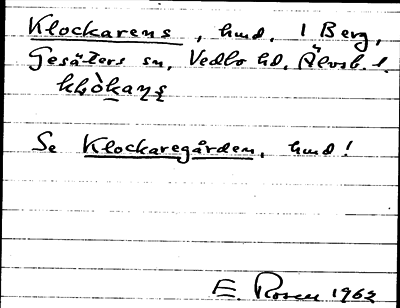 Klockarens, hmd. i Berg,
Gesäters sn, Vedbo hd, Älvsb. l.
Se Klockaregården, hmd!
E. Rosen 1962